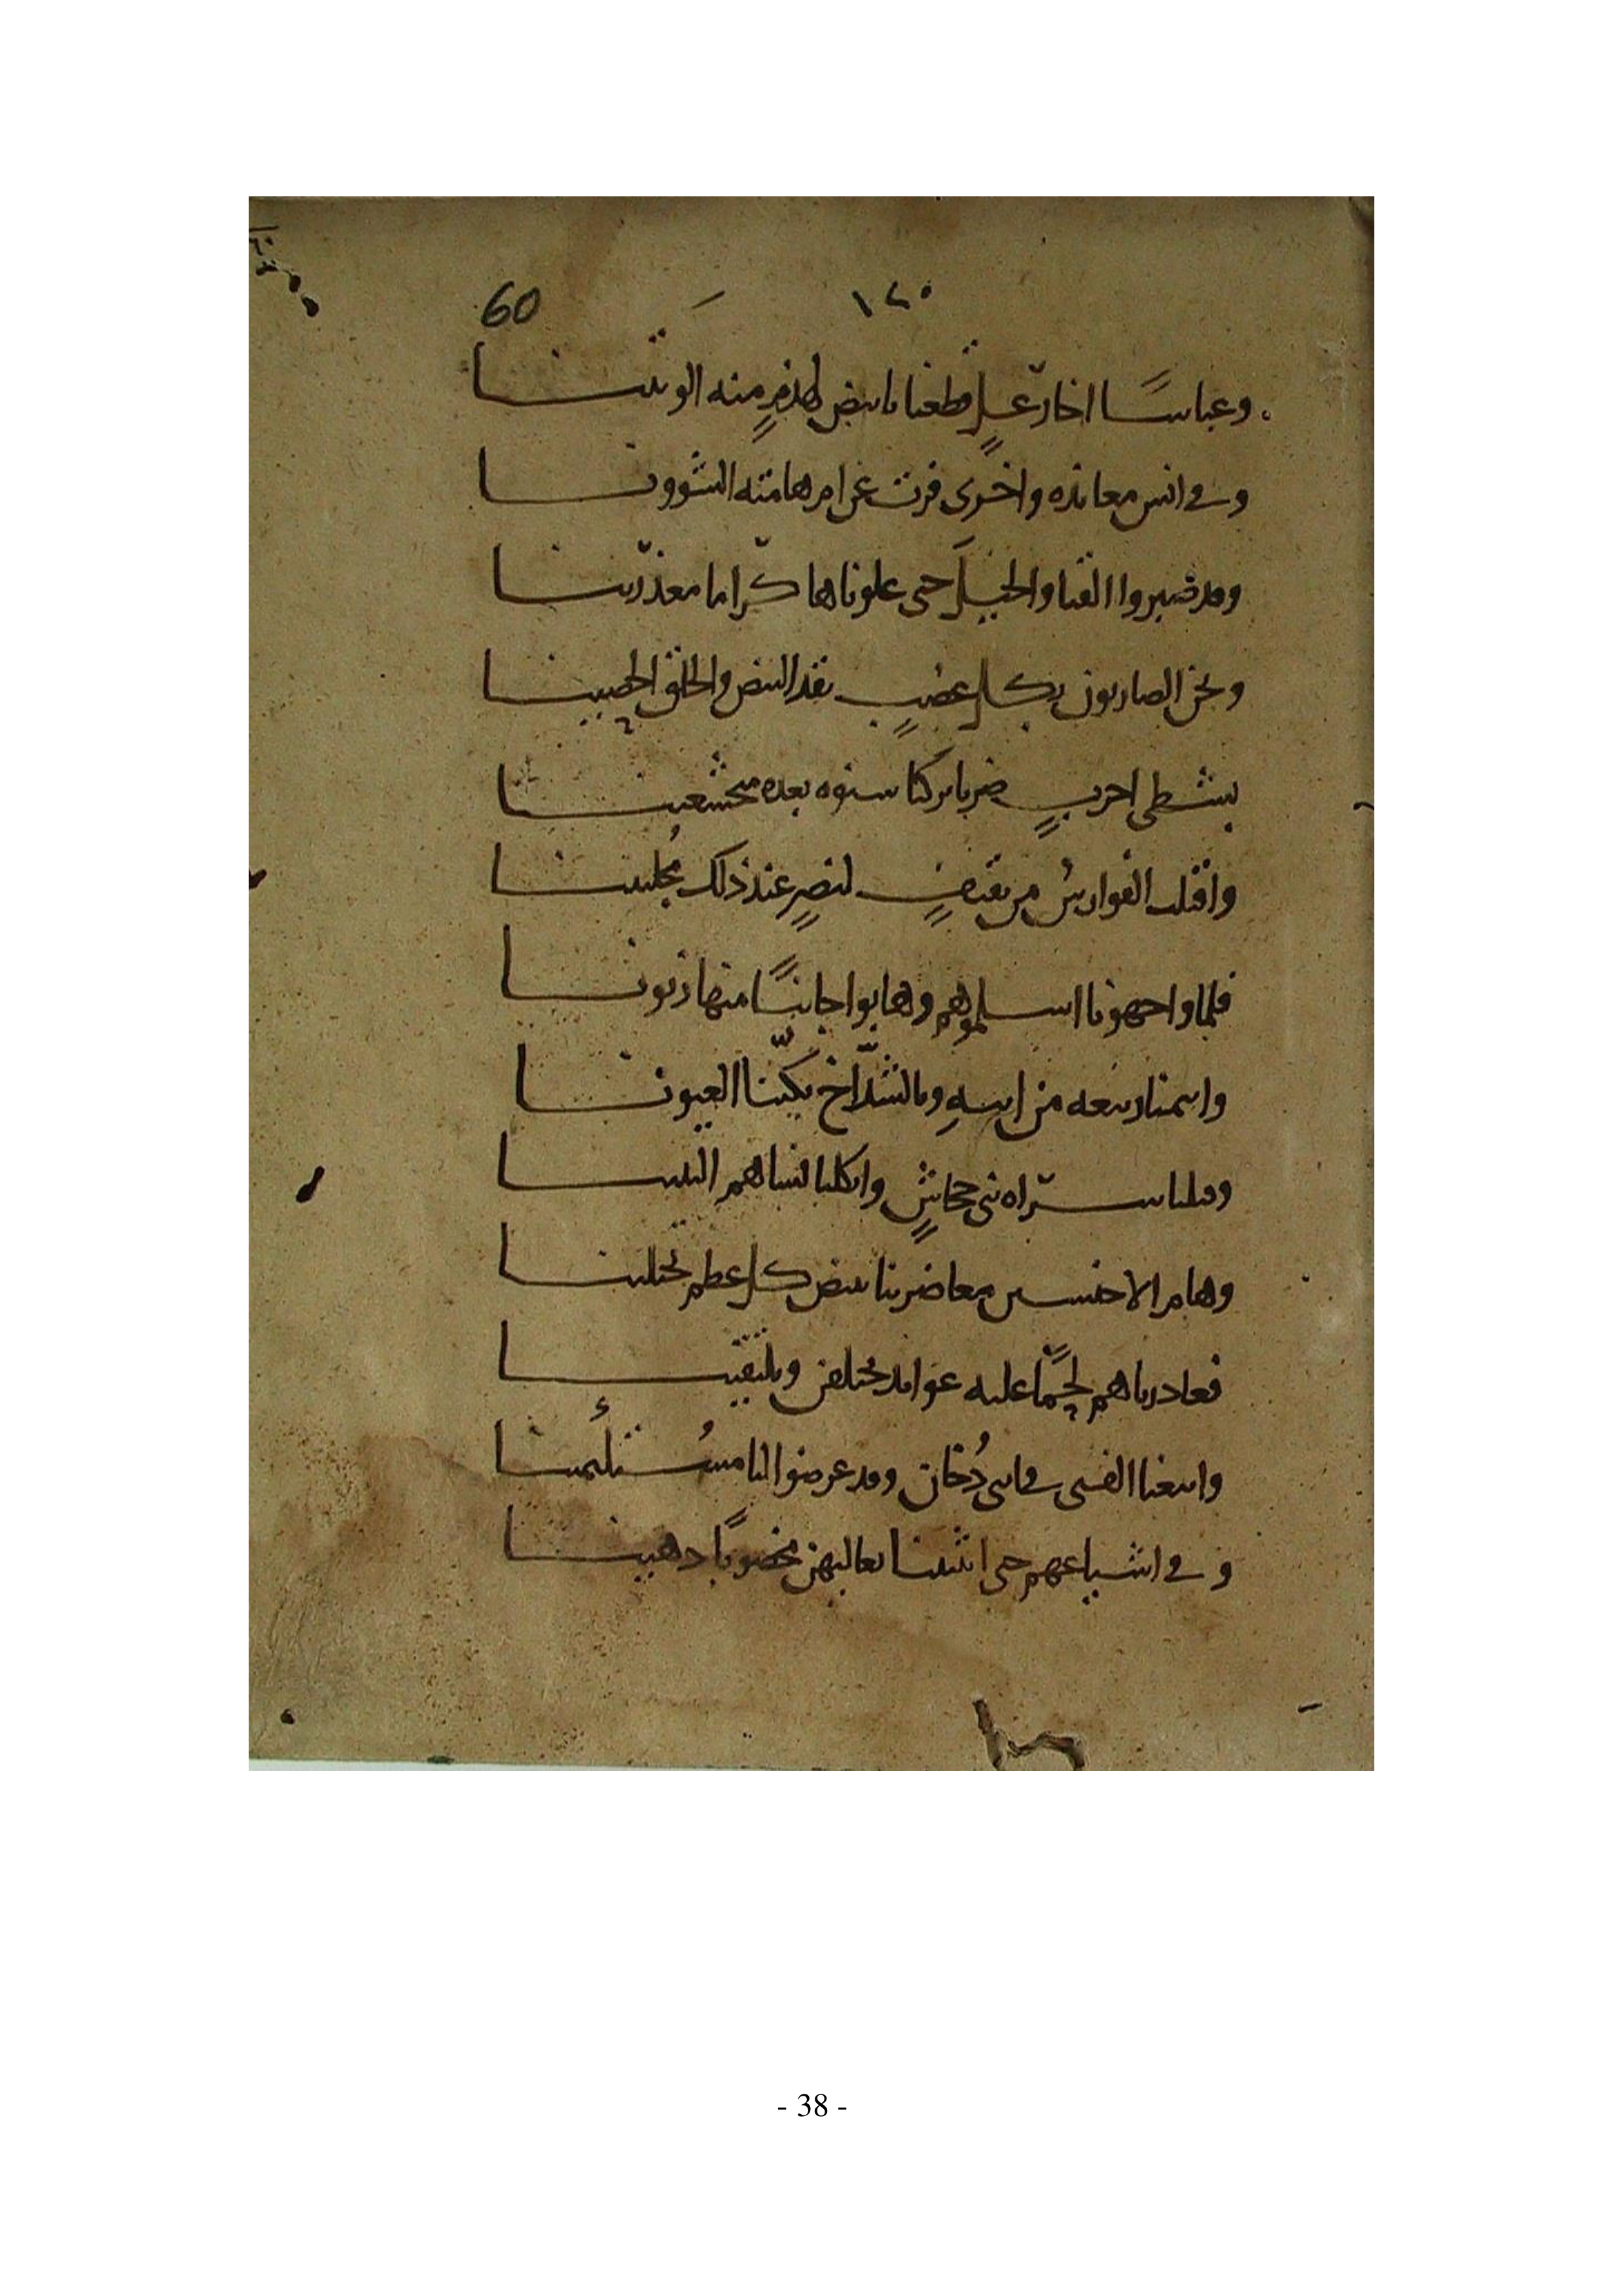 60 ١٢٠
وعباسا اخا رعل قطعنا بابيض لهذم منه الوتينا
وفي انس معانده واخرى فرت عن ام هامته الشوونا
وقد صبروا القنا والخيل حتى علوناها كراما معذرينا
ونحن الضاربون بكل عضب نقد البيض والحلق الحصينا
بشطي احرب ضربا تركنا بعده متخشعينا
الفوارس من ثقيف لنصر عند ذلك مجلبينا
فلما واجهونا اسلموهم وهابوا جانبا منها زبونا
ربيعه من ابيه وبالشداخ بكينا العيونا
سراه بني جحاش واثكلنا نساهم البنينا
وهام الاخنسين معا ضربنا ببيض كل عظم يختلينا
فغادرناهم لحما عليه عوائد يختلفن ويلتقينا
واتبعنا القسي دخان وقد عرضوا لنا مستلئمينا
وفي اشياعهم حتى انثنينا دهينا
- 38 -